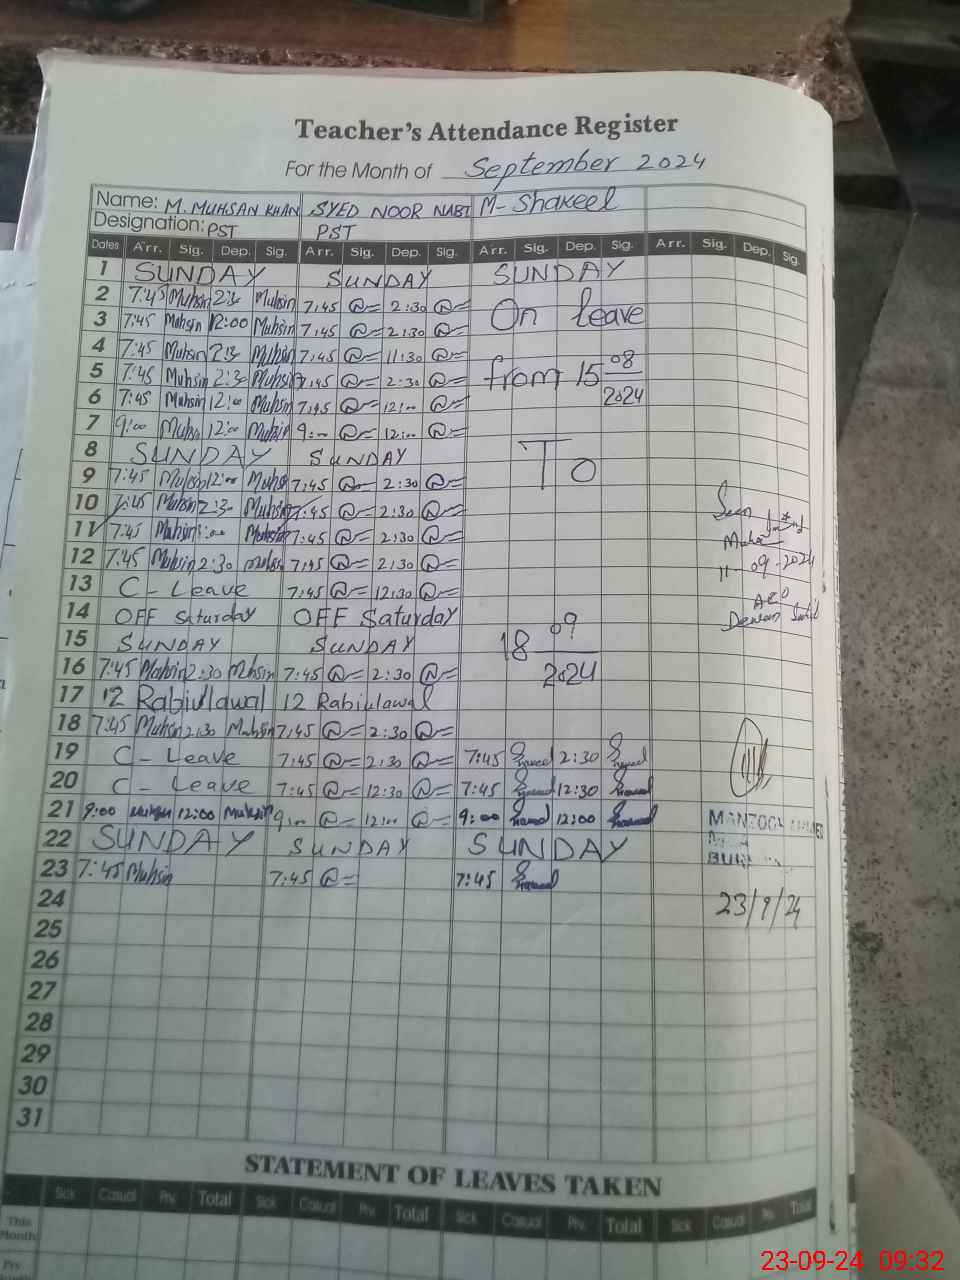 Teacher's Attendance Register
For the Month of September 2024
Name: M. MUHSAN KHAN SYED NOOR NABI M- Shakeel
Designation: PST PST
Dates Arr. Sig. Dep. Sig. Arr. Sig. Dep. Sig. Arr. Sig. Dep. Sig. Arr. Sig. Dep. Sig.
1 SUNDAY SUNDAY SUNDAY
2 7:45 Muhsin 2:3 Muhsin 7:45 2:30 On leave
3 7:45 Muhsin 12:00 Muhsin 7:45 2:30
4 7:45 Muhsin 2:3 Muhsin 7:45 11:30
5 7:45 Muhsin 2:30 Muhsin 7:45 2:30 from 15 08
6 7:45 Muhsin 12:00 Muhsin 7:45 12:00 2024
7 9:00 Muhsin 12:00 Muhsin 9:00 12:00
8 SUNDAY SUNDAY To
9 7:45 Muhsin 12:00 Muhsin 7:45 2:30
10 7:45 Muhsin 2:30 Muhsin 7:45 2:30 Seen
11 7:45 Muhsin Muhsin 7:45 2:30
12 7:45 Muhsin 2:30 Muhsin 7:45 2:30 11-09-2024
13 C - Leave 7:45 12:30
14 OFF Saturday OFF Saturday
15 SUNDAY SUNDAY 18 09
16 7:45 Muhsin 2:30 Muhsin 7:45 2:30 2024
17 12 Rabiullawal 12 Rabiulawal
18 7:45 Muhsin 2:30 Muhsin 7:45 2:30
19 C - Leave 7:45 2:30 7:45 2:30
20 C - Leave 7:45 12:30 7:45 12:30
21 9:00 Muhsin 12:00 Muhsin 9:00 12:00 9:00 12:00 MANZOOR AHMED
22 SUNDAY SUNDAY SUNDAY
23 7:45 Muhsin 7:45 7:45
24 23/9/24
25
26
27
28
29
30
31
STATEMENT OF LEAVES TAKEN
Sick Casual Prv. Total Sick Casual Prv. Total Sick Casual Prv. Total Sick Casual Prv. Total
This
Month
Prv.
23-09-24 09:32